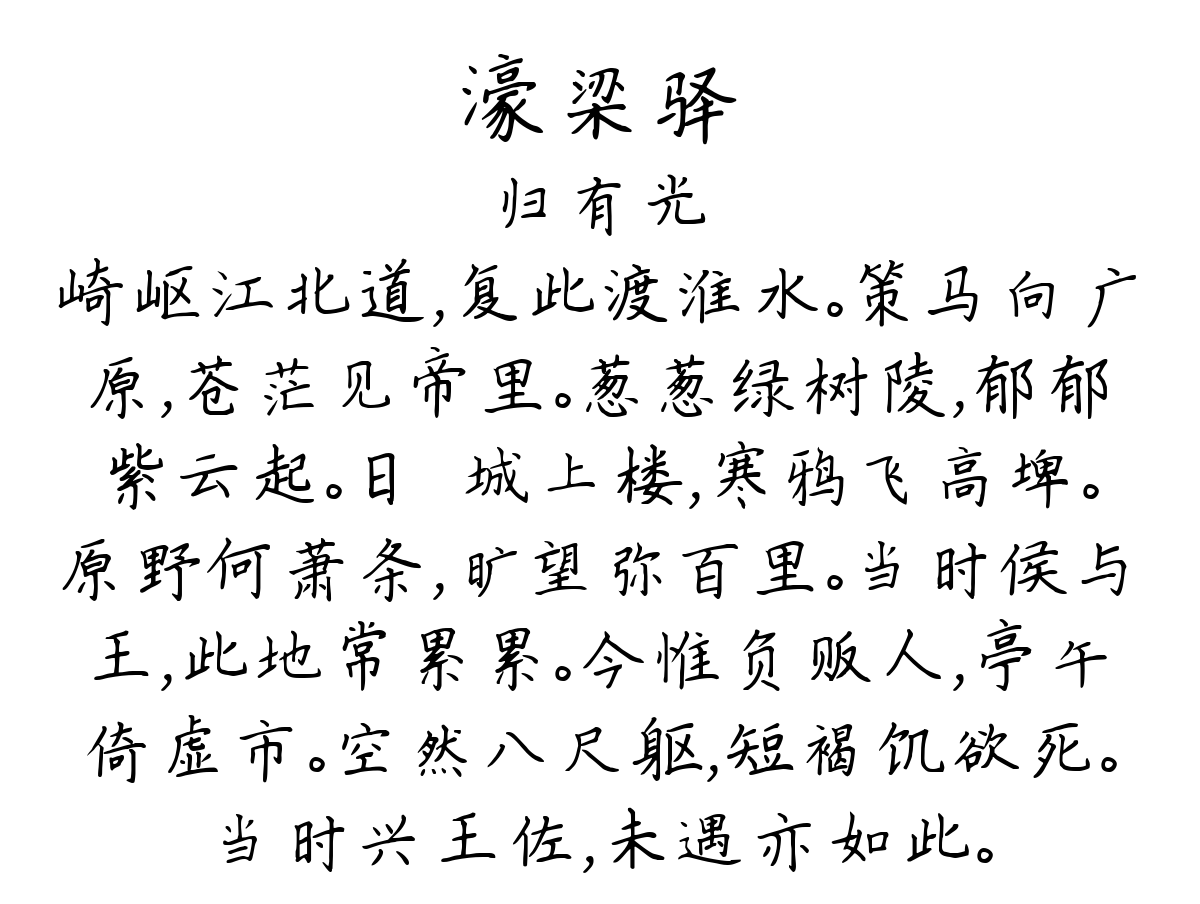 濠梁驿
归有光
崎岖江北道,复此渡淮水。策马向广
原,苍茫见帝里。葱葱绿树陵,郁郁
紫云起。日 城上楼,寒鸦飞高埤。
原野何萧条,旷望弥百里。当时侯与
王,此地常累累。今惟负贩人,亭午
倚虚市。空然八尺躯,短褐饥欲死。
当时兴王佐,未遇亦如此。